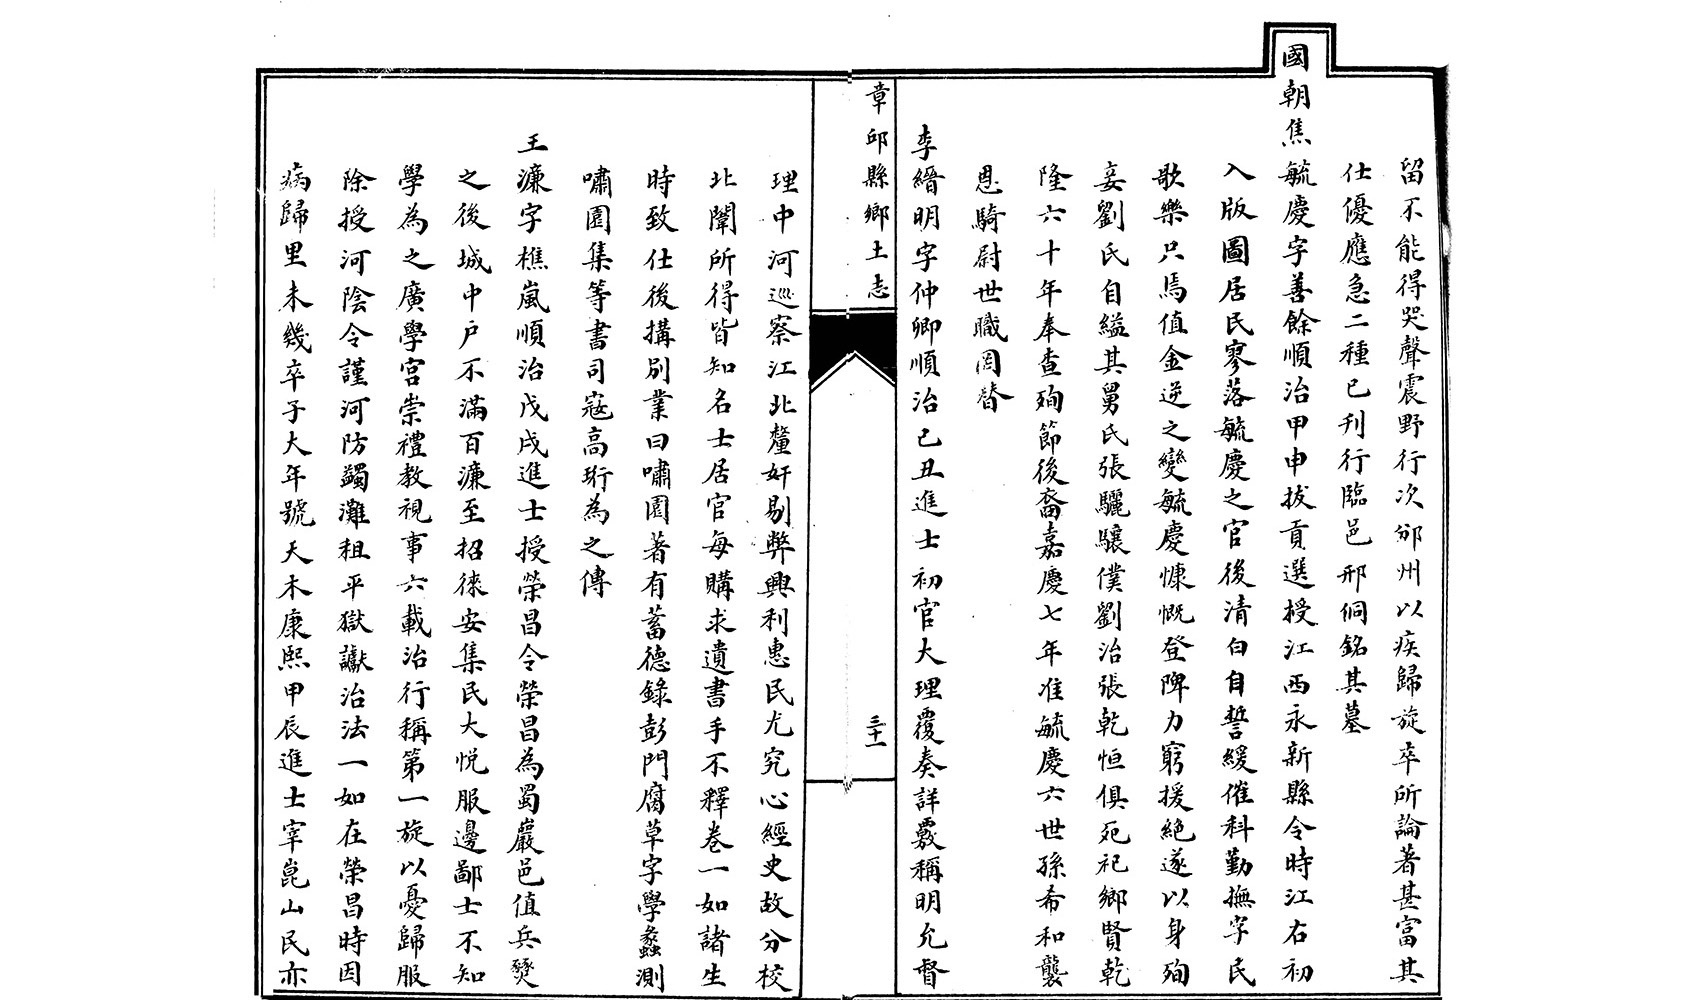 留不能得哭聲震野行次邠州以疾歸旋卒所論著甚富其
仕優應急二種已刊行臨邑邢侗銘其墓
國朝焦毓慶字善餘順治甲申拔貢選授江西永新縣令時江右初
入版圖居民寥落毓慶之官後清白自誓緩催科勤撫字民
歌樂只焉值金逆之變毓慶慷慨登陴力窮援絕遂以身殉
妾劉氏自縊其舅氏張驪驤僕劉治張乾恒俱死祀鄉賢乾
隆六十年奉查殉節後裔嘉慶七年准毓慶六世孫希和襲
恩騎尉世職罔替
李縉明字仲卿順治己丑進士初官大理覆奏詳覈稱明允督
章邱縣鄉土志
三十一
理中河巡察江北釐奸剔弊興利惠民尤究心經史故分校
北闈所得皆知名士居官每購求遺書手不釋卷一如諸生
時致仕後搆別業曰嘯園著有蓄德錄彭門腐草字學蠡測
嘯園集等書司寇高珩為之傳
王濂字樵嵐順治戊戌進士授榮昌令榮昌為蜀巖邑值兵燹
之後城中戶不滿百濂至招徠安集民大悅服邊鄙士不知
學為之廣學宮崇禮教視事六載治行稱第一旋以憂歸服
除授河陰令謹河防蠲灘租平獄讞治法一如在榮昌時因
病歸里未幾卒子大年號天木康熙甲辰進士宰崑山民亦